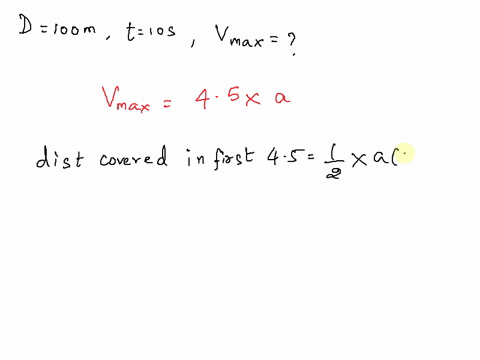 D = 100m, t = 10s, Vmax = ?
Vmax = 4.5 x a
dist covered in first 4.5 = 1/2 x a(